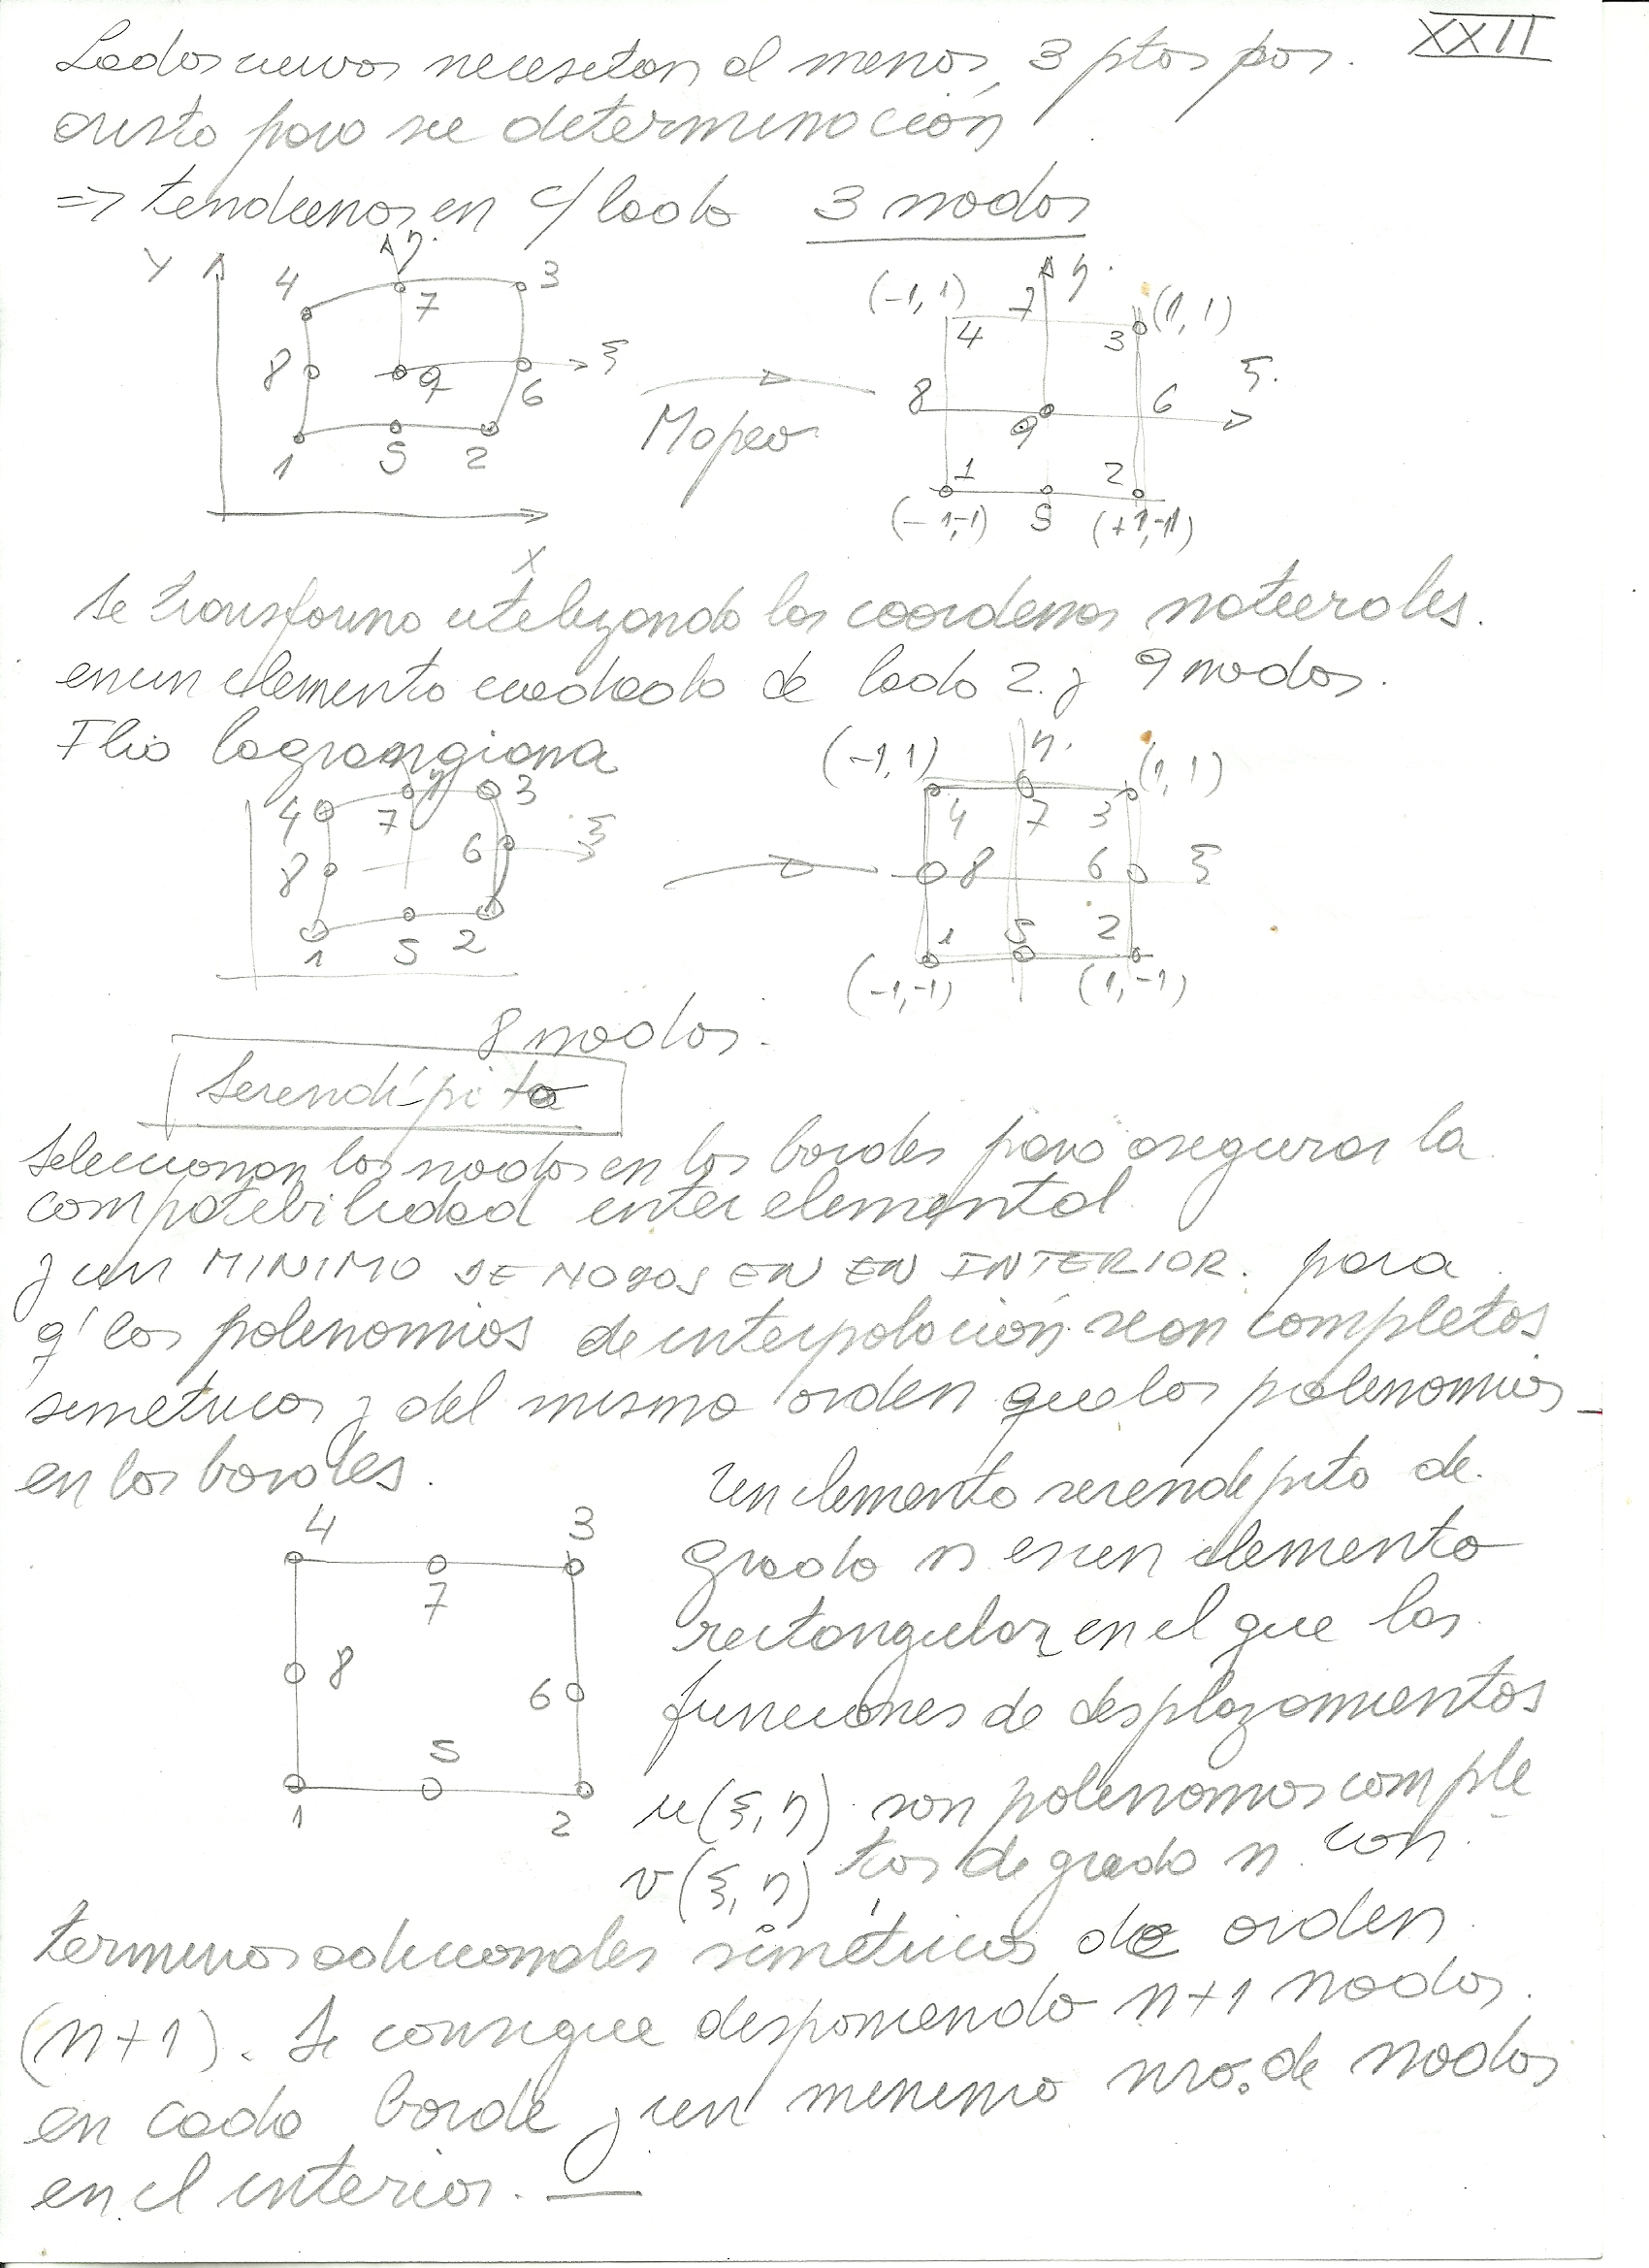 XXII
Lados curvos necesitan al menos 3 ptos por
arista para su determinación
=> tendremos en c/lado 3 nodos
Y η
4 7 3
8 9 ξ
6
1 5 2
X
Mapeo
(-1,1) 7 η (1,1)
4 3
8 9 6 ξ
1 2
(-1,-1) 5 (+1,-1)
Se transforma utilizando las coordenas naturales.
en un elemento cuadrado de lado 2 y 9 nodos.
Flia lagrangiana
4 7 η 3
8 6 ξ
1 5 2
(-1,1) η (1,1)
4 7 3
8 6 ξ
1 5 2
(-1,-1) (1,-1)
8 nodos.
Serendípita
Seleccionan los nodos en los bordes para asegurar la
compatibilidad inter elemental
y un MINIMO DE NODOS EN EN INTERIOR. para
q' los polinomios de interpolación sean completos
simetricos y del mismo orden que los polinomios
en los bordes.
4 3
7
8 6
5
1 2
Un elemento serendipito de
grado n es un elemento
rectangular en el que las
funciones de desplazamientos
u(ξ,η) son polinomos comple
v(ξ,η) tos de grado n con
terminos adicionales simétricos de orden
(n+1). Se consigue disponiendo n+1 nodos
en cada borde y un minimo nro. de nodos
en el interior. —